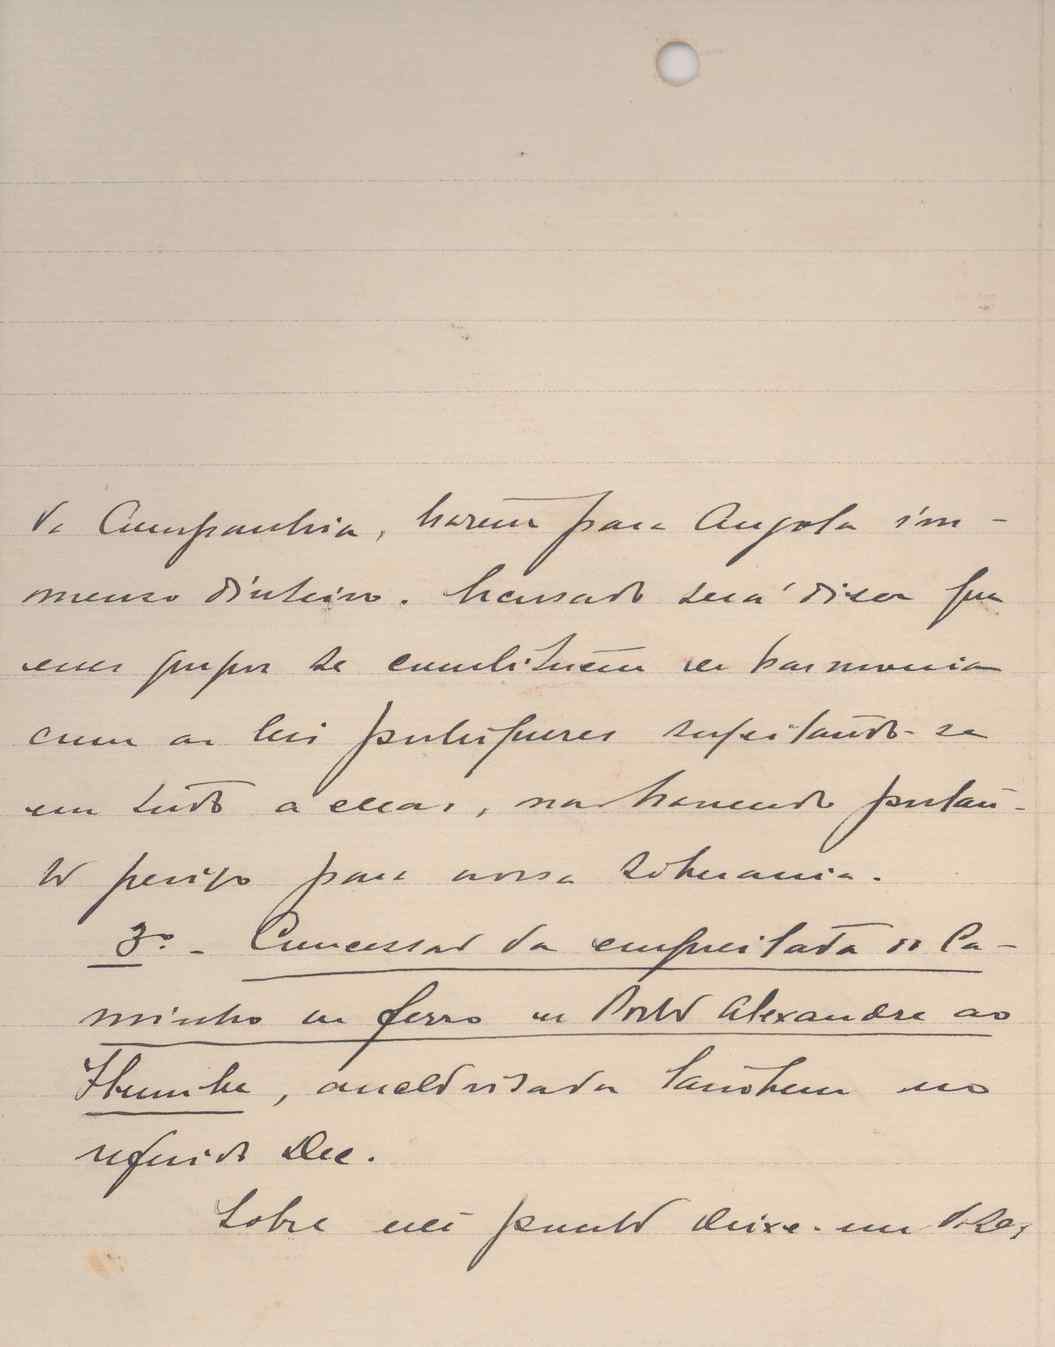 da Companhia, trarem para Angola im-
menso dinheiro. Escusado será dizer que
esses grupos se constituem em harmonia
com as leis portuguesas sugeitando-se
em tudo a ellas, não havendo portan-
to perigo para nossa soberania.
3º - Concessão da empreitada do Ca-
minho de ferro de Porto Alexandre ao
Humbe, auctorisada tambem no
referido Dec.
Sobre este ponto deixe-me dizer